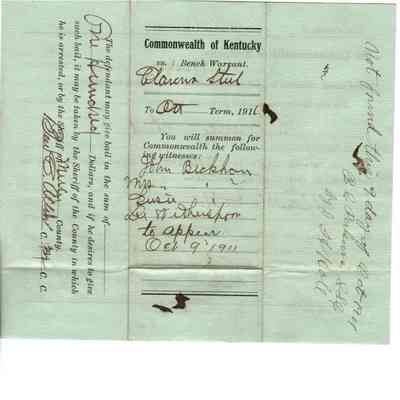 The defendant may give bail in the sum of
One Hundred Dollars, and if he desires to give
such bail, it may be taken by the Sheriff of the County in which
he is arrested, or by the Sheriff of County.
C. C.
Commonwealth of Kentucky
vs. : Bench Warrant.
Clarence
To Oct Term, 191
You will summon for
Commonwealth the follow-
ing witnesses:
John Beckham
Mrs. " "
Susie "
Witherspoon
to appear
Oct 9 1911
Not found this 9 day of Oct 1911
By